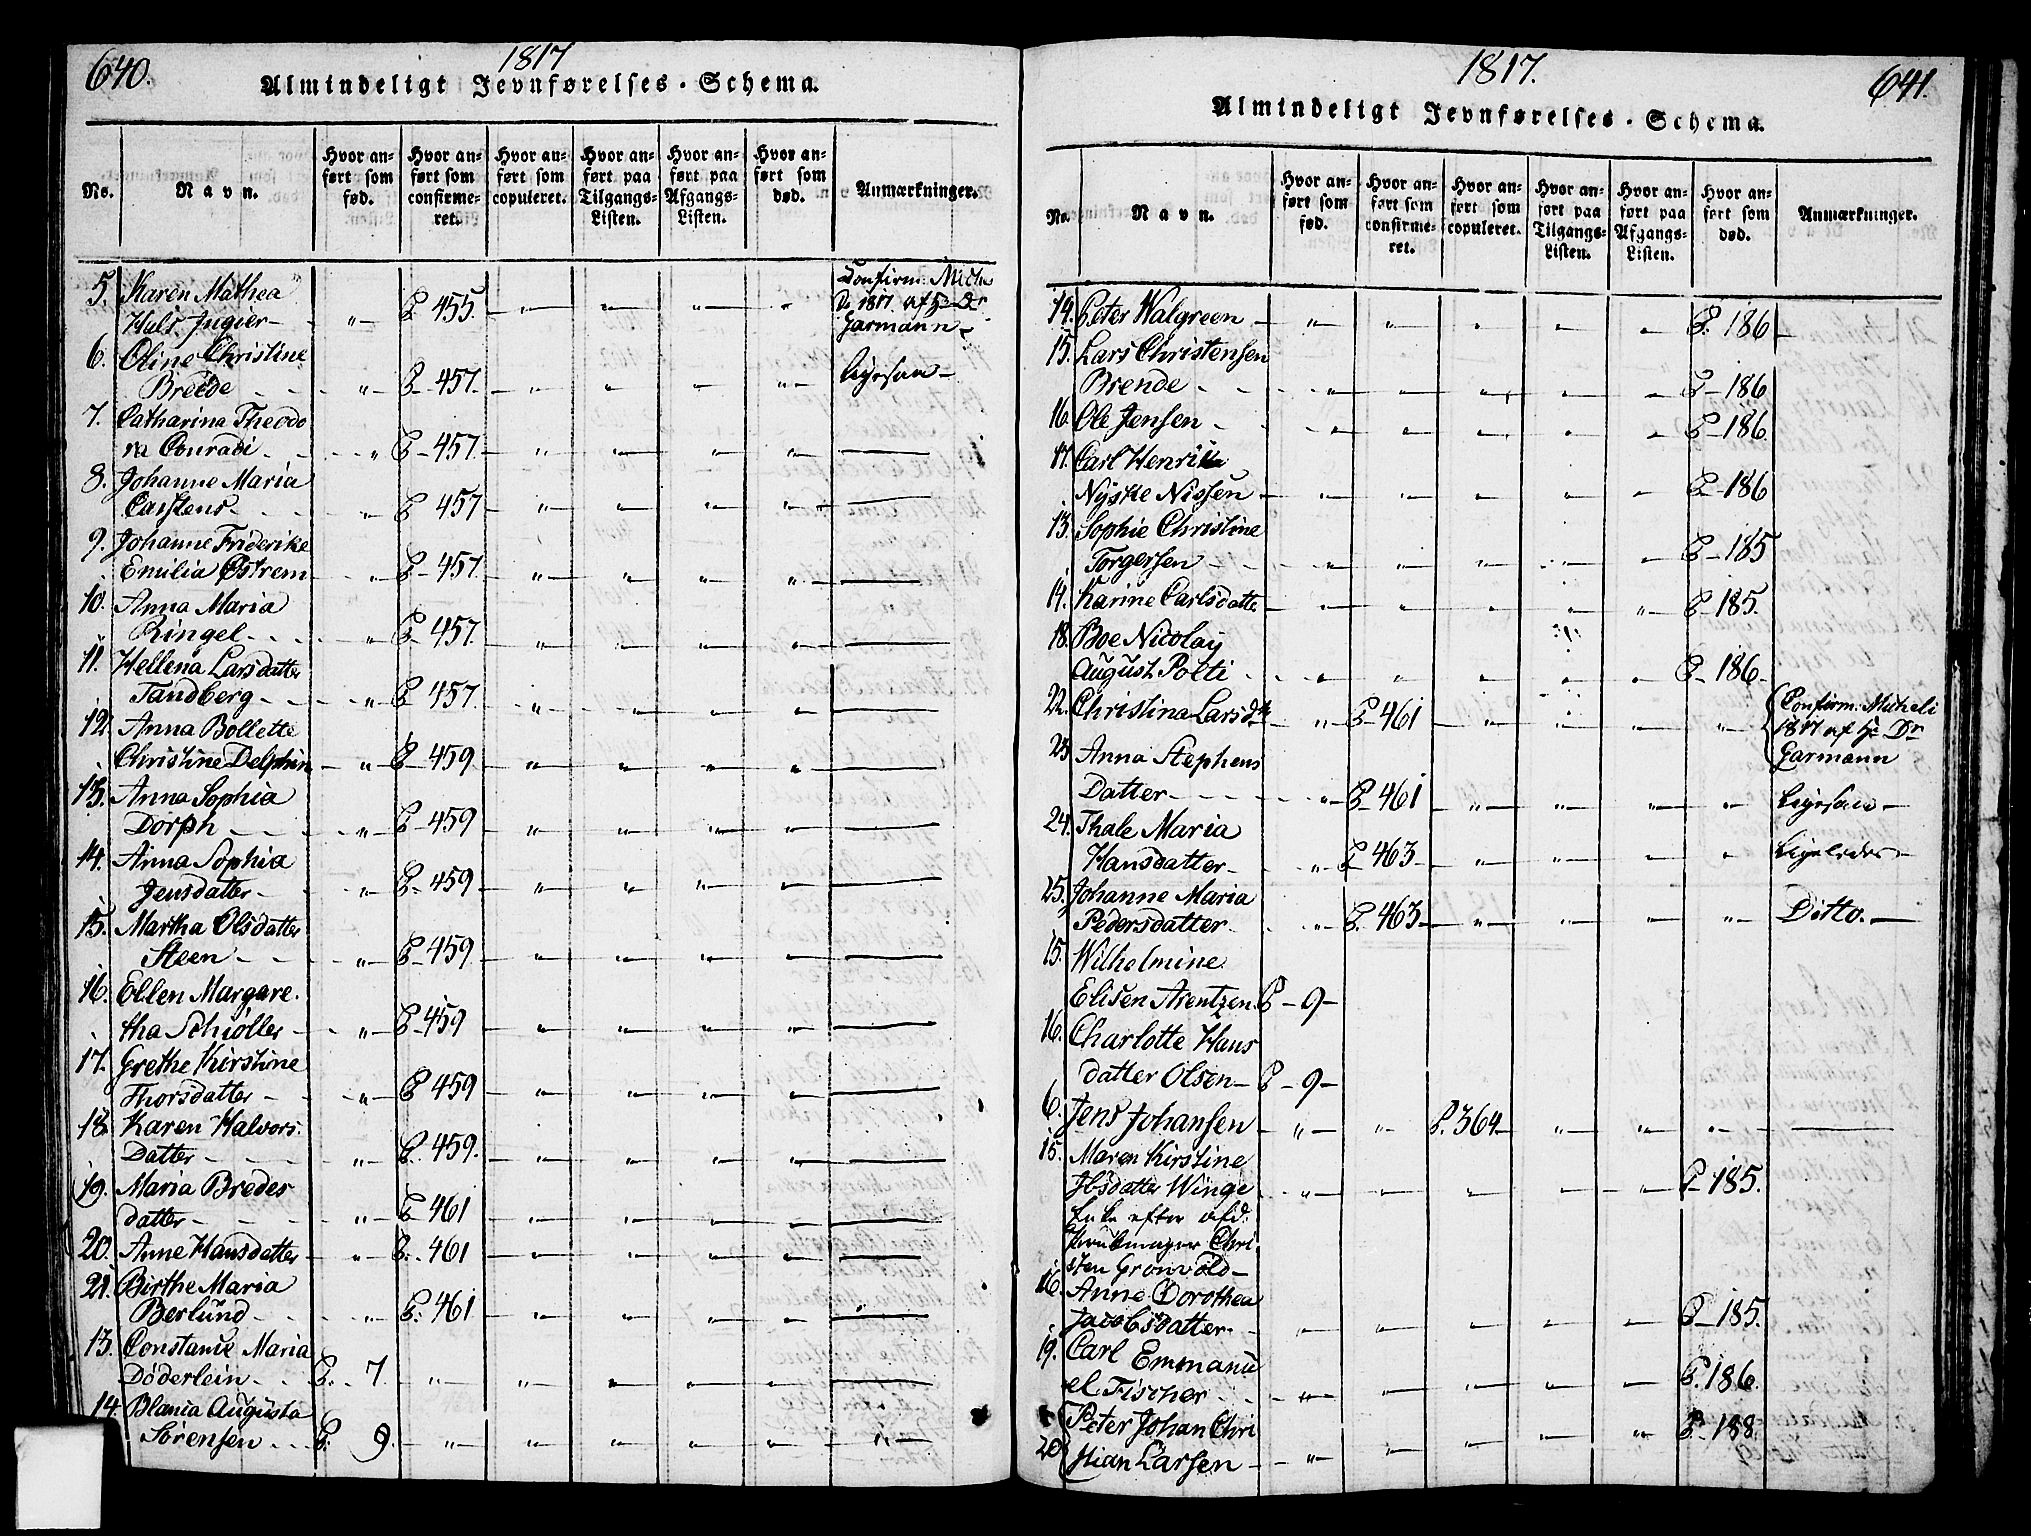 640.
1817
Almindeligt Jevnførelses-Schema.
No.
Navn.
Hvor an-
ført som
fød.
Hvor an-
ført som
confirme-
ret.
Hvor an-
ført som
copuleret.
Hvor an-
ført paa
Tilgangs-
Listen.
Hvor an-
ført paa
Afgangs-
Listen.
Hvor an-
ført som
død.
Anmærkninger.
5. Karen Mathea
Hals Jugier - " - P 455 - " - " - " - " Confirm: Miche
1817 af Hr Dr
Garmann -
6. Oline Christine
Breede - " P - 457. - " - " - " - " - Ligesaa -
7. Catharina Theodo
ra Conradi - " P - 457. - " - " - " - "
8. Johanne Maria
Carstens - " P - 457 - " - " - " - "
9. Johanne Friderike
Emilia Østrem - " P - 457. - " - " - " - "
10. Anna Maria
Ringel - " P - 457 - " - " - " - "
11. Hellena Larsdatter
Tandberg - " P - 457. - " - " - " - "
12. Anna Bollette
Christine Delphin - " P - 459. - " - " - " - "
13. Anna Sophia
Dorph - " P - 459 - " - " - " - "
14. Anna Sophia
Jensdatter - " P - 459 - " - " - " - "
15. Martha Olsdatter
Steen - " P - 459. - " - " - " - "
16. Ellen Margare.
tha Schiøller - " P - 459 - " - " - " - "
17. Grethe Kirstine
Thorsdatter - " P 459 - " - " - " - "
18. Karen Halvors.
Datter - " P. - 459. - " - " - " - "
19. Maria Bredes
datter - " P 461 - " - " - " - "
20. Anne Hansdatter - " P. 461 - " - " - " - "
21. Birthe Maria
Berlund - " P. 461 - " - " - " - "
13. Constance Maria
Døderlein - P. 7. - " - " - " - " - "
14. Blania Augusta
Sørensen - P. 9. - " - " - " - " - " - "
1817.
641.
Almindeligt Jevnførelses-Schema.
No.
Navn.
Hvor an-
ført som
fød.
Hvor an-
ført som
confirme-
ret.
Hvor an-
ført som
copuleret.
Hvor an-
ført paa
Tilgangs-
Listen.
Hvor an-
ført paa
Afgangs-
Listen.
Hvor an-
ført som
død.
Anmærkninger.
14. Peter Walgreen - " - " - " - " - " P. 186 -
15. Lars Christensen
Brende - " - " - " - " - " P - 186
16. Ole Jensen - " - " - " - " - " P - 186.
17. Carl Henrik
Nyske Nissen - " - " - " - " - " P - 186
13. Sophie Christine
Torgersen - " - " - " - " - " P - 185
14. Karine Carlsdatter - " - " - " - " - " P - 185.
18. Boe Nicolay
August Polti - " - " - " - " - " P - 186 -
22. Christina Larsdtr - " P - 461 - " - " - " - " Confirm: Micheli
1817 af Hr Dr
Garmann
23 Anna Stephens
Datter - " P - 461 - " - " - " - " Ligesaa -
24. Thale Maria
Hansdatter - " P 463 - " - " - " - " Ligeledes -
25. Johanne Maria
Pedersdatter - " P. 463 - " - " - " - " Ditto. -
15. Wilhelmine
Elisen Arentzen P - 9 -
16. Charlotte Hans
datter Olsen - P - 9 -
6. Jens Johansen - " - " P. 364 - " - " - "
15. Maren Kirstine
Ibsdatter Winge - " - " - " - " - " P - 185.
Enke efter afd:
Chri
sten Grønvold -
16. Anne Dorothea
Jacobsdatter - " - " - " - " - " P - 185.
19. Carl Emmanu
el Fischer - " - " - " - " - " P. 186.
20 Peter Johan Chri
stian Larsen - " - " - " - " - " P - 188.